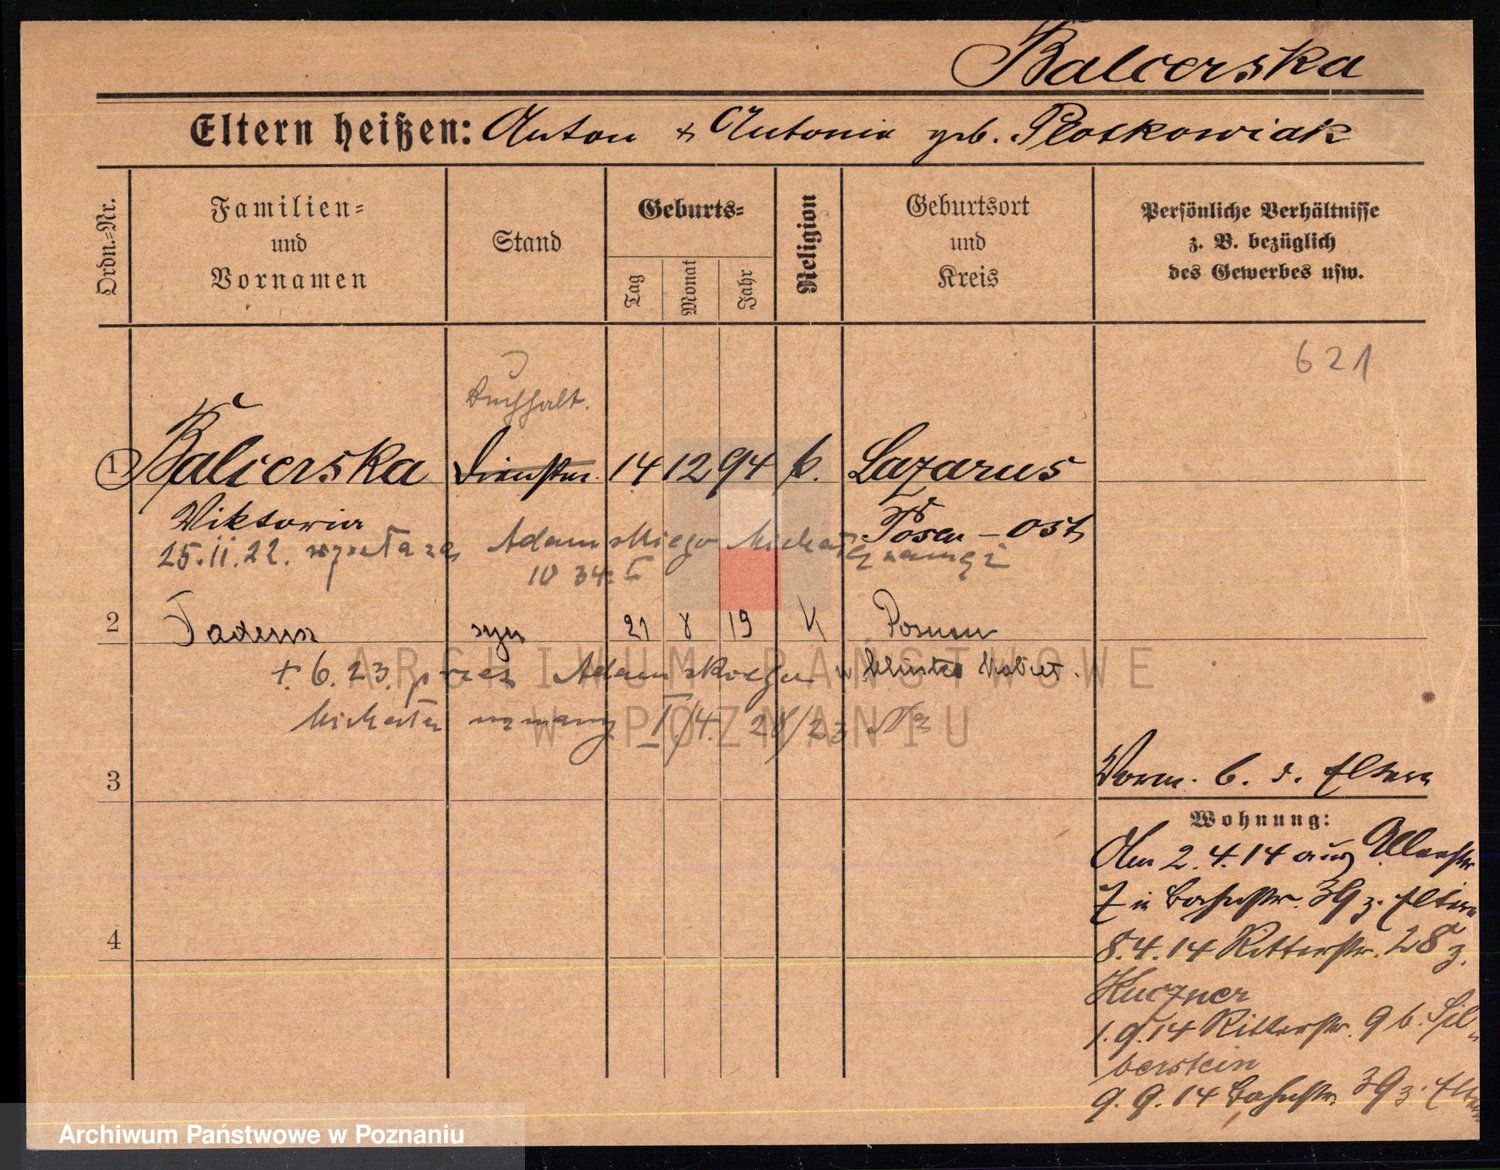 Balcerska
Eltern heißen: Anton & Antonie geb. Ploskowiak
Ordn.=Nr.
Familien=
und
Vornamen
Stand
Geburts=
Tag
Monat
Jahr
Religion
Geburtsort
und
Kreis
Persönliche Verhältnisse
z. B. bezüglich
des Gewerbes usw.
621
Buchhalt.
1 Balcerska Dienstm. 14 12 94 k. Lazarus
Viktoria Posen - Ost
25.11.22. wyszła za Adamskiego Michała
10 34: I
2 Tadeusz syn 21 8 19 K Poznan
+ 6.23. przez Adamskiego w Kobiet.
Michała uznany I/4. 28/23
3
Vorm. b. d. Eltern
Wohnung:
Am 2.4.14 aus
7 in Bahnstr. 39 z. Eltern
4
8.4.14 Ritterstr. 28 z.
Kuczner
1.9.14 Ritterstr. 9 b. Sil-
berstein
9.9.14 Bahnstr. 39 z. Eltern
ARCHIWUM PAŃSTWOWE
W POZNANIU
Archiwum Państwowe w Poznaniu